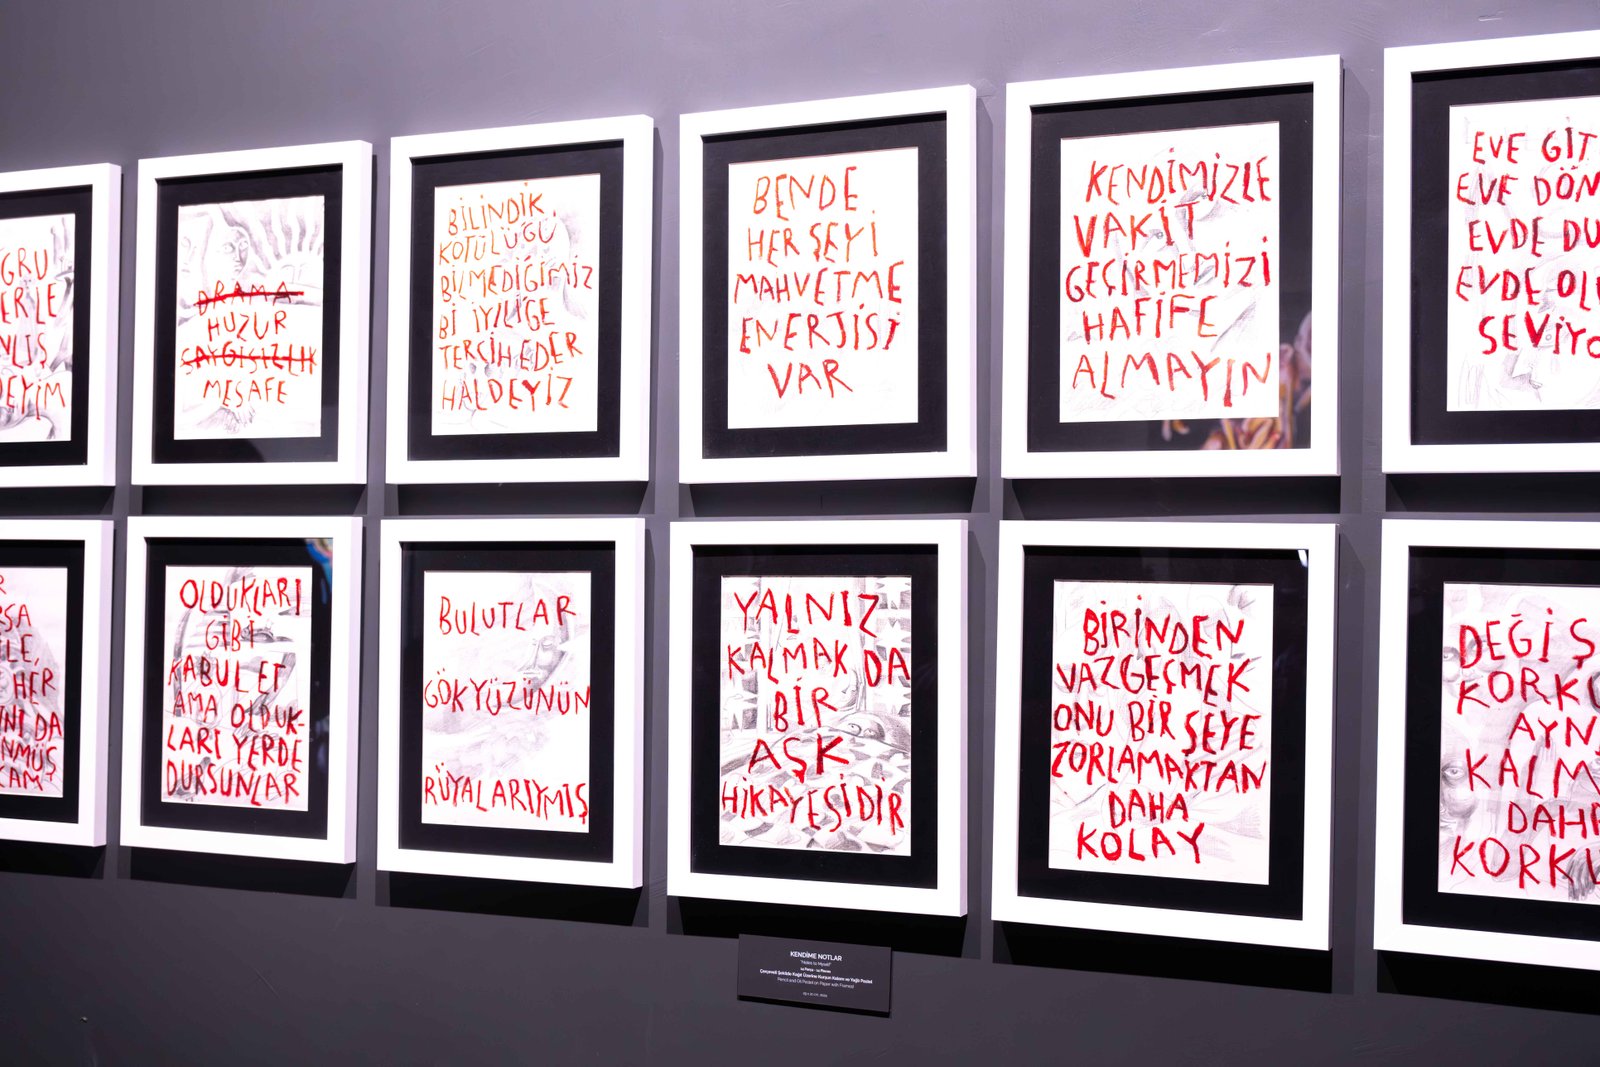 ĞRU
ERLE
NLIŞ
DEYİM
DRAMA
HUZUR
SAYGISIZLIK
MESAFE
BİLİNDİK
KÖTÜLÜĞÜ
BİLMEDİĞİMİZ
Bİ İYİLİĞE
TERCİH EDER
HALDEYİZ
BENDE
HER ŞEYİ
MAHVETME
ENERJİSİ
VAR
KENDİMİZLE
VAKİT
GEÇİRMEMİZİ
HAFİFE
ALMAYIN
EVE GİT
EVE DÖN
EVDE DU
EVDE OL
SEVİYO
R
RSA
İLE,
HER
INI DA
NMÜŞ
CAM
OLDUKLARI
GİBİ
KABUL ET
AMA OLDUK-
LARI YERDE
DURSUNLAR
BULUTLAR
GÖKYÜZÜNÜN
RÜYALARIYMIŞ
YALNIZ
KALMAK DA
BİR
AŞK
HİKAYESİDİR
BİRİNDEN
VAZGEÇMEK
ONU BİR ŞEYE
ZORLAMAKTAN
DAHA
KOLAY
DEĞİŞ
KORKU
AYN
KALM
DAHA
KORKU
KENDİME NOTLAR
"Notes to Myself"
Çerçeveli Şekilde Kağıt Üzerine Kurşun Kalem ve Yağlı Pastel
Pencil and Oil Pastel on Paper with Framed